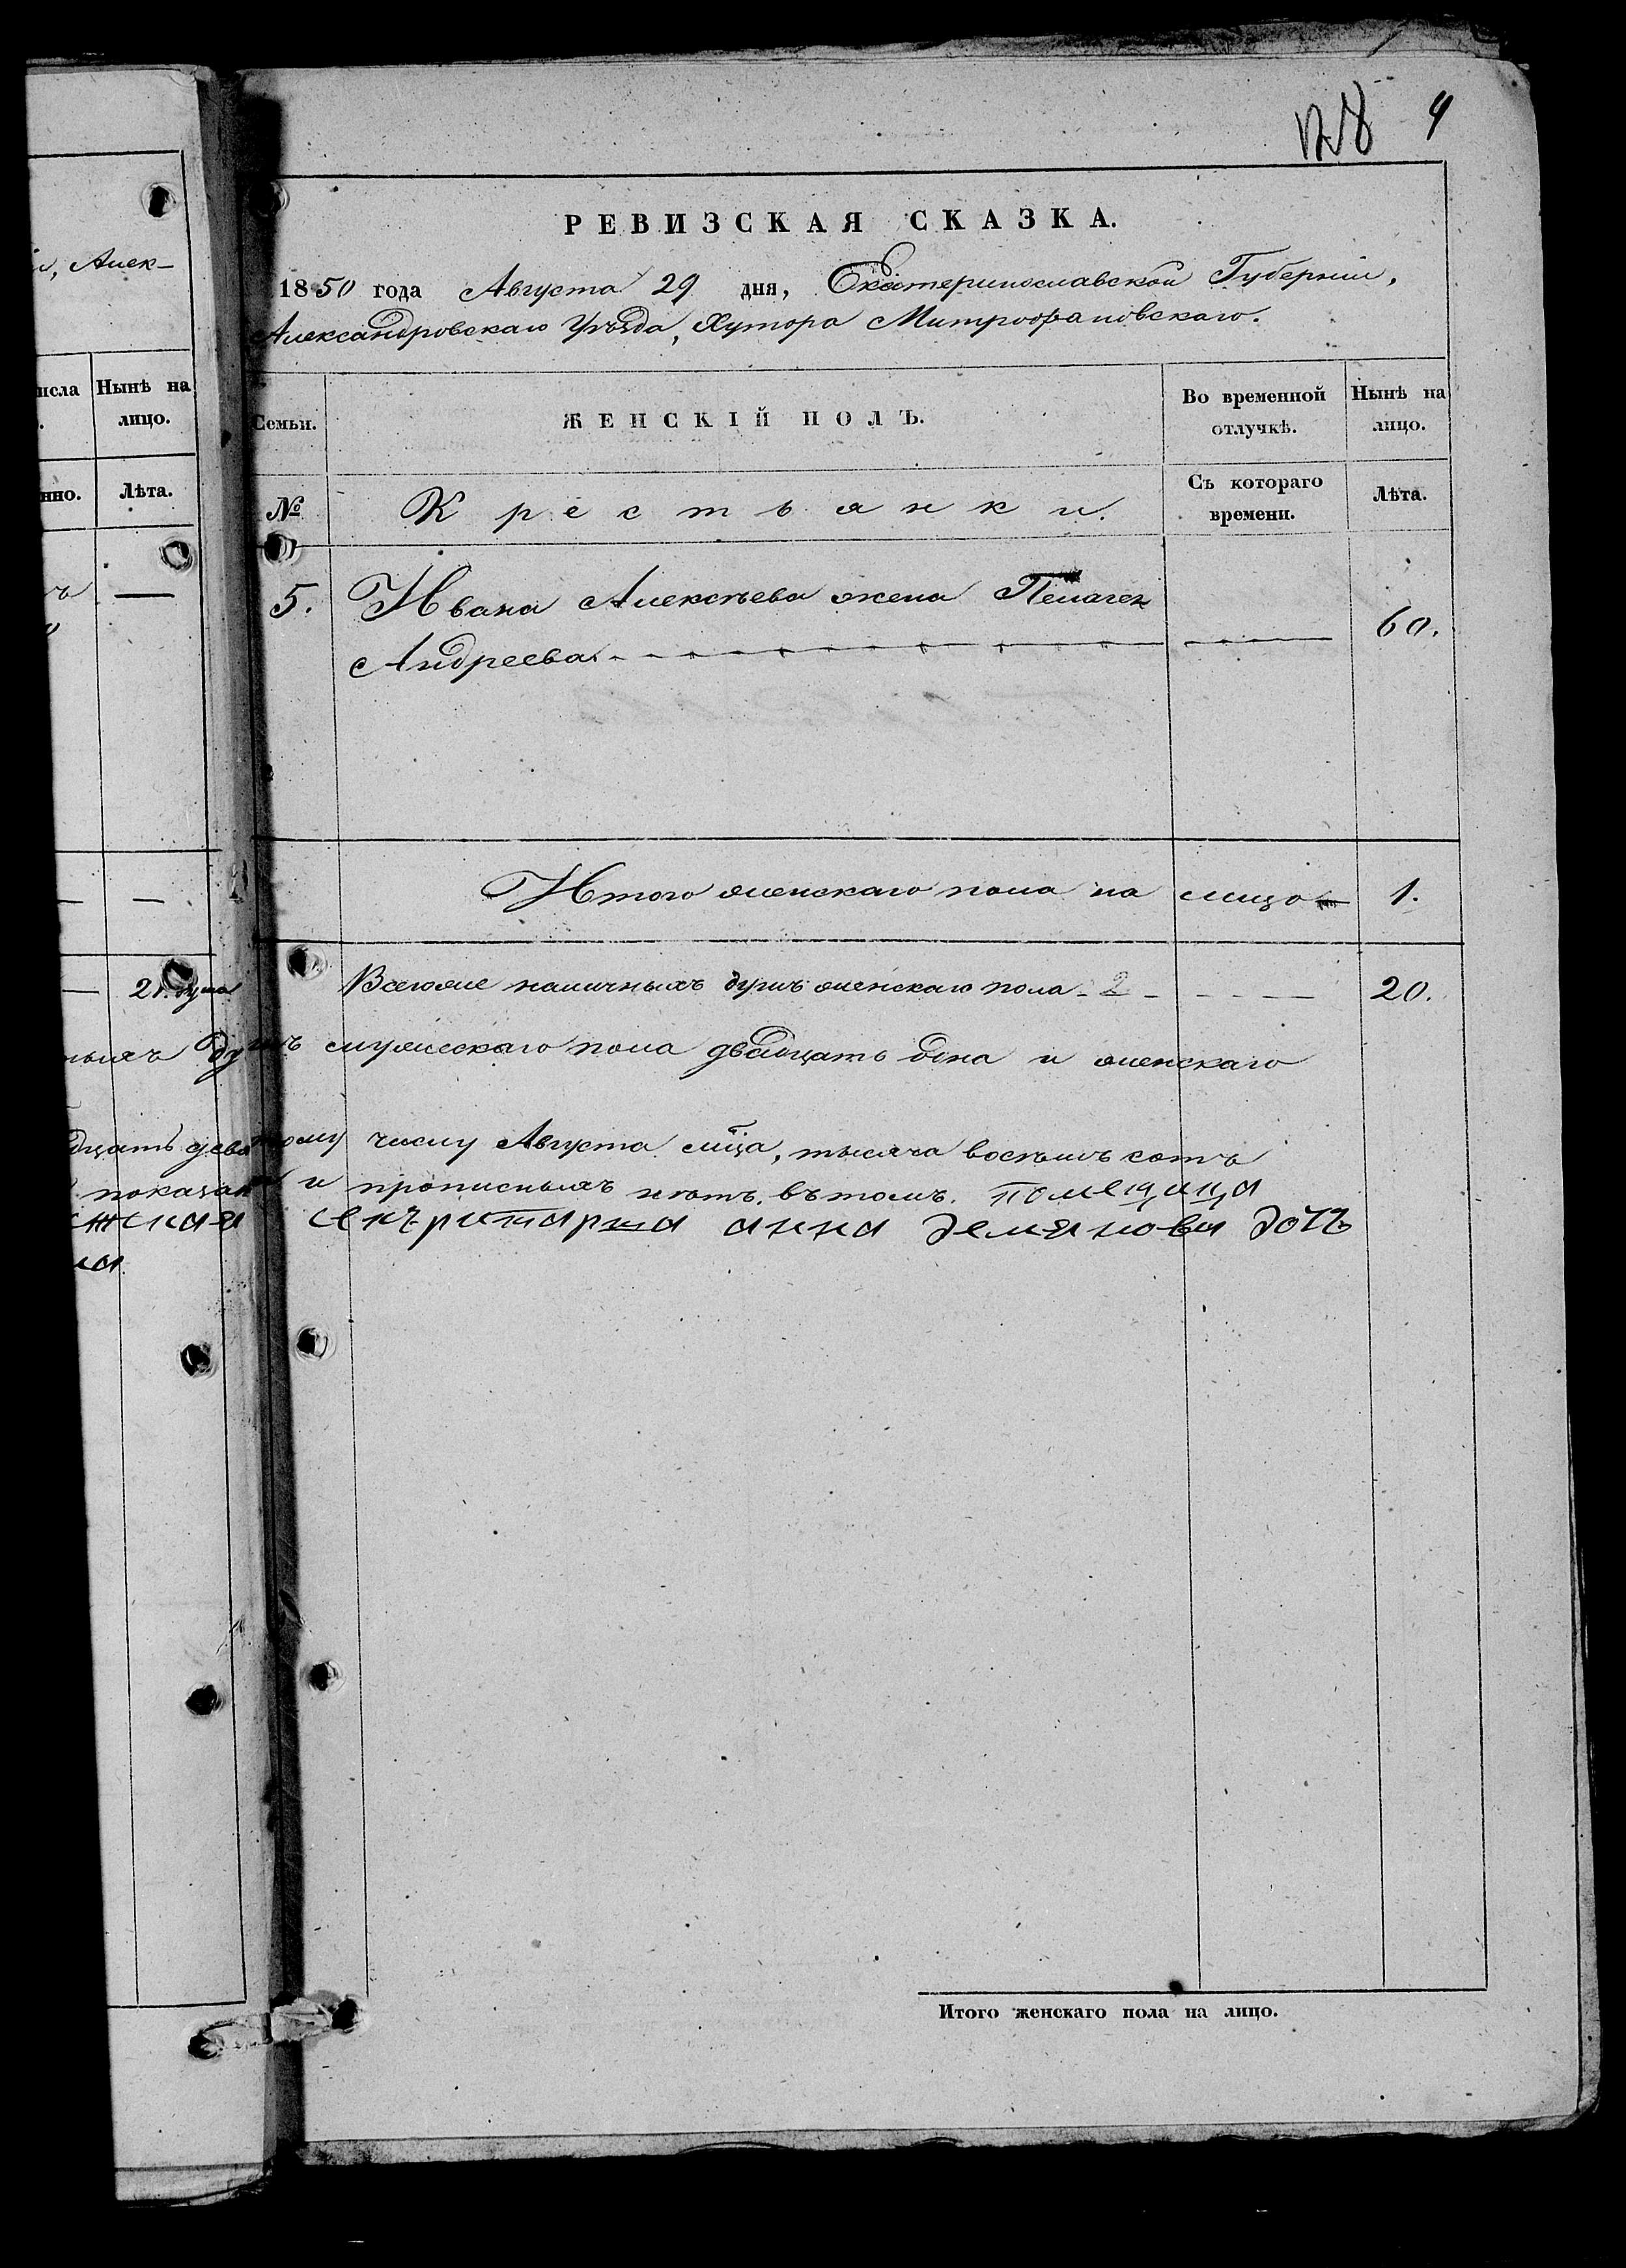 128 4
РЕВИЗСКАЯ СКАЗКА.
1850 года Августа 29 дня, Екатеринославской Губерніи,
Александровскаго Уѣзда, Хутора Митрофановскаго.
и, Алек-
исла
Нынѣ на
лицо.
нно.
Лѣта.
Семьи.
ЖЕНСКІЙ ПОЛЪ.
Во временной
отлучкѣ.
Нынѣ на
лицо.
№
Крестьянки.
Съ котораго
времени.
Лѣта.
5. Ивана Алексѣева жена Пелагея
Андреева 60.
Итого женскаго пола на лицо 1.
21. душа
Всегоже наличныхъ душъ женскаго пола - 2 - 20.
ныхъ душъ мужескаго пола двадцать одна и женскаго
дцать девятому числу Августа мца, тысяча восемъ сотъ
показан и прописныхъ нѣтъ. въ томъ. помещица
секъритарша анна демянова дочь
на
Итого женскаго пола на лицо.